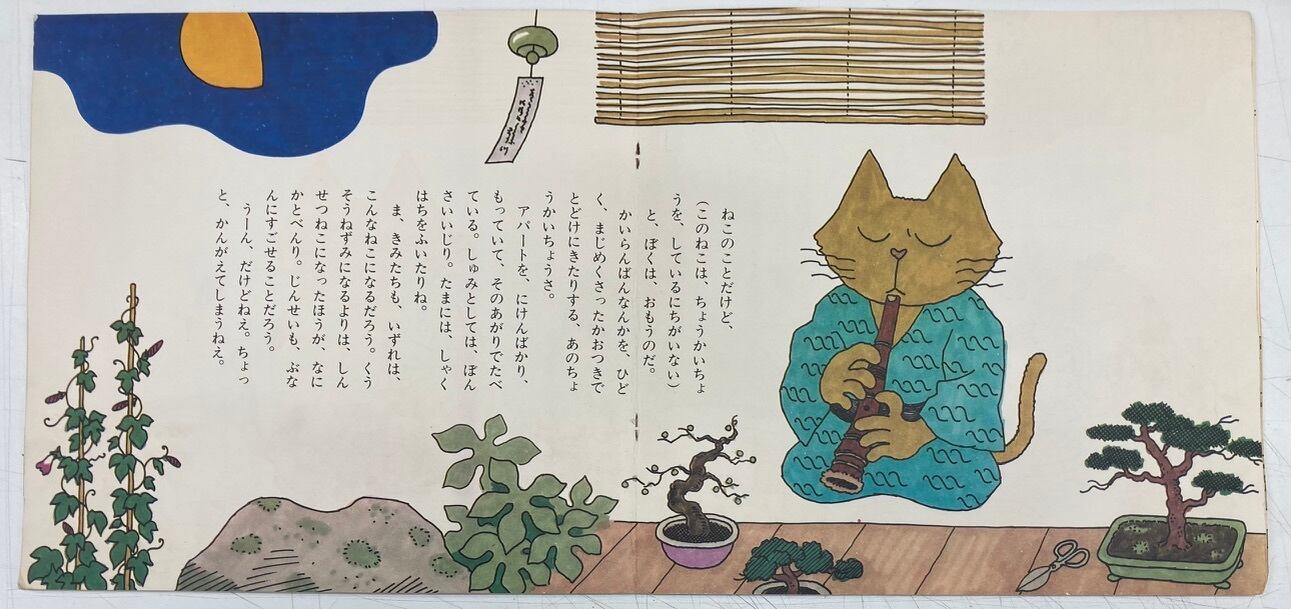 ねこのことだけど、
(このねこは、ちょうかいちょ
うを、しているにちがいない)
と、ぼくは、おもうのだ。
かいらんばんなんかを、ひど
く、まじめくさったかおつきで
とどけにきたりする、あのちょ
うかいちょうさ。
アパートを、にけんばかり、
もっていて、そのあがりでたべ
ている。しゅみとしては、ぼん
さいいじり。たまには、しゃく
はちをふいたりね。
ま、きみたちも、いずれは、
こんなねこになるだろう。くう
そうねずみになるよりは、しん
せつねこになったほうが、なに
かとべんり。じんせいも、ぶな
んにすごせることだろう。
うーん、だけどねえ。ちょっ
と、かんがえてしまうねえ。